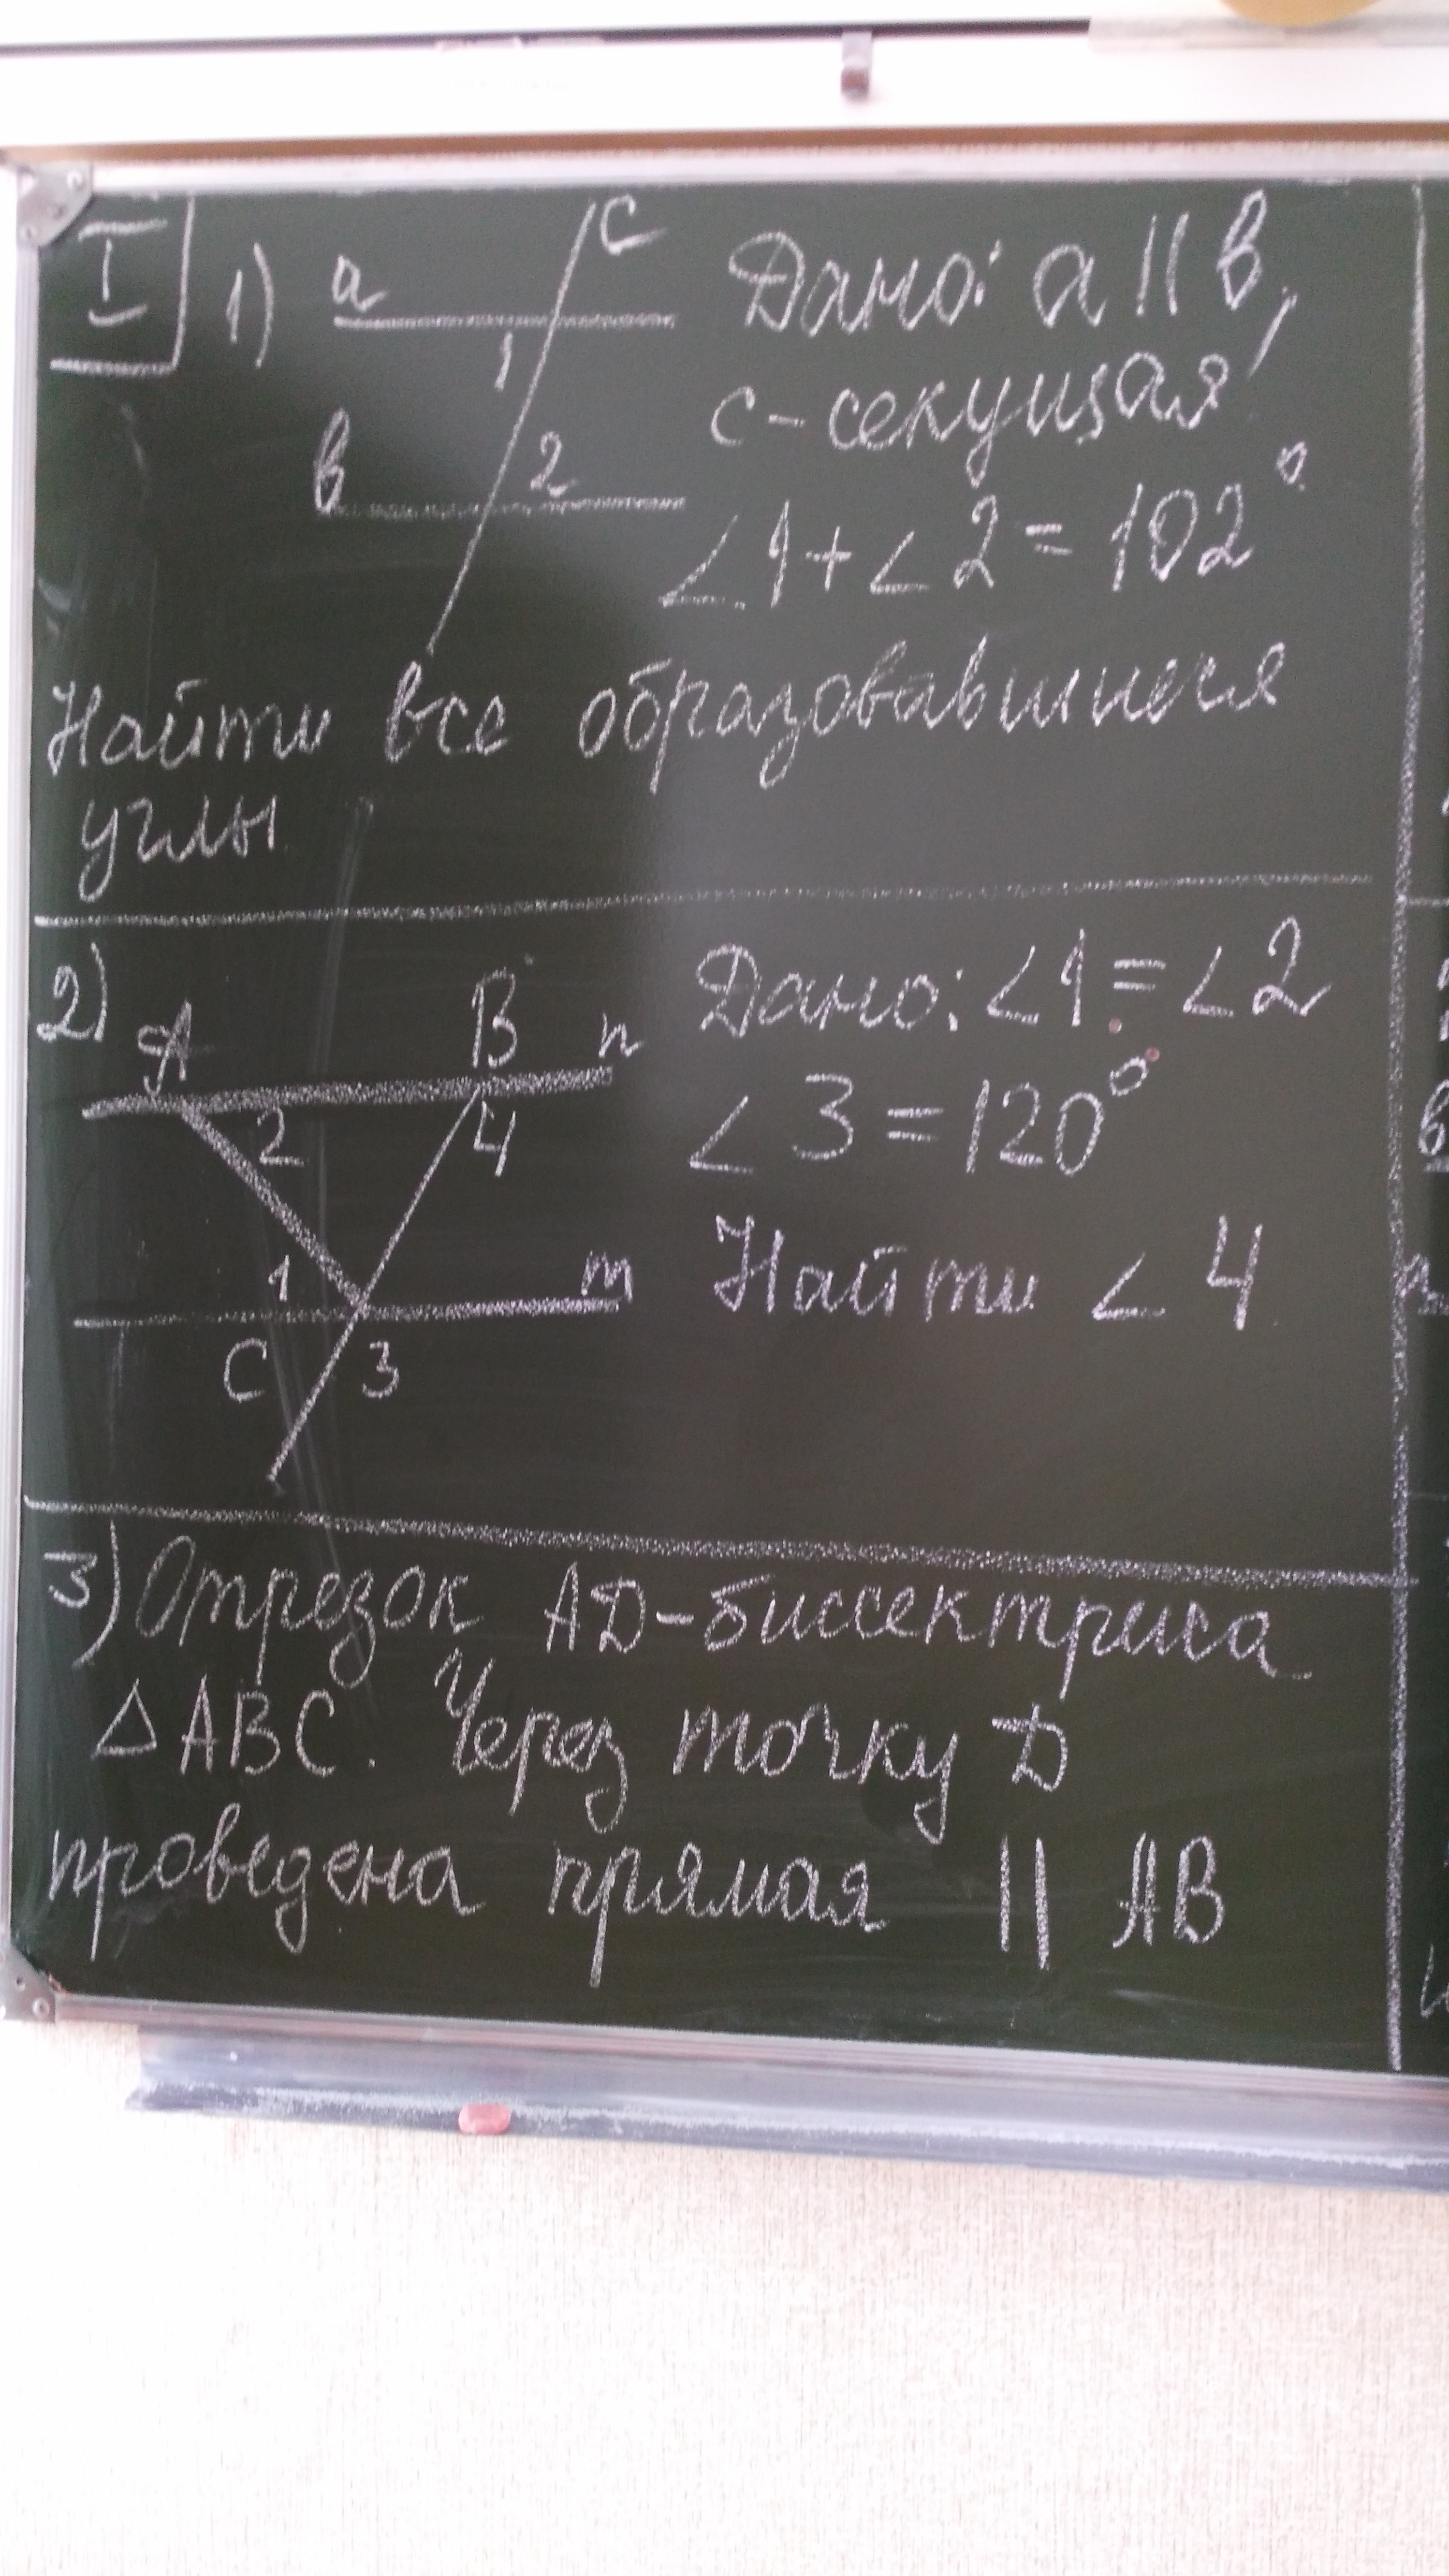 I
1) a c Дано: a || b,
1
c - секущая
b 2
∠1 + ∠2 = 102°
Найти все образовавшиеся
углы
2) A B n Дано: ∠1 = ∠2
2 4 ∠3 = 120°
1 m Найти ∠4
C 3
3) Отрезок AD - биссектриса
△ABC. Через точку D
проведена прямая || AB